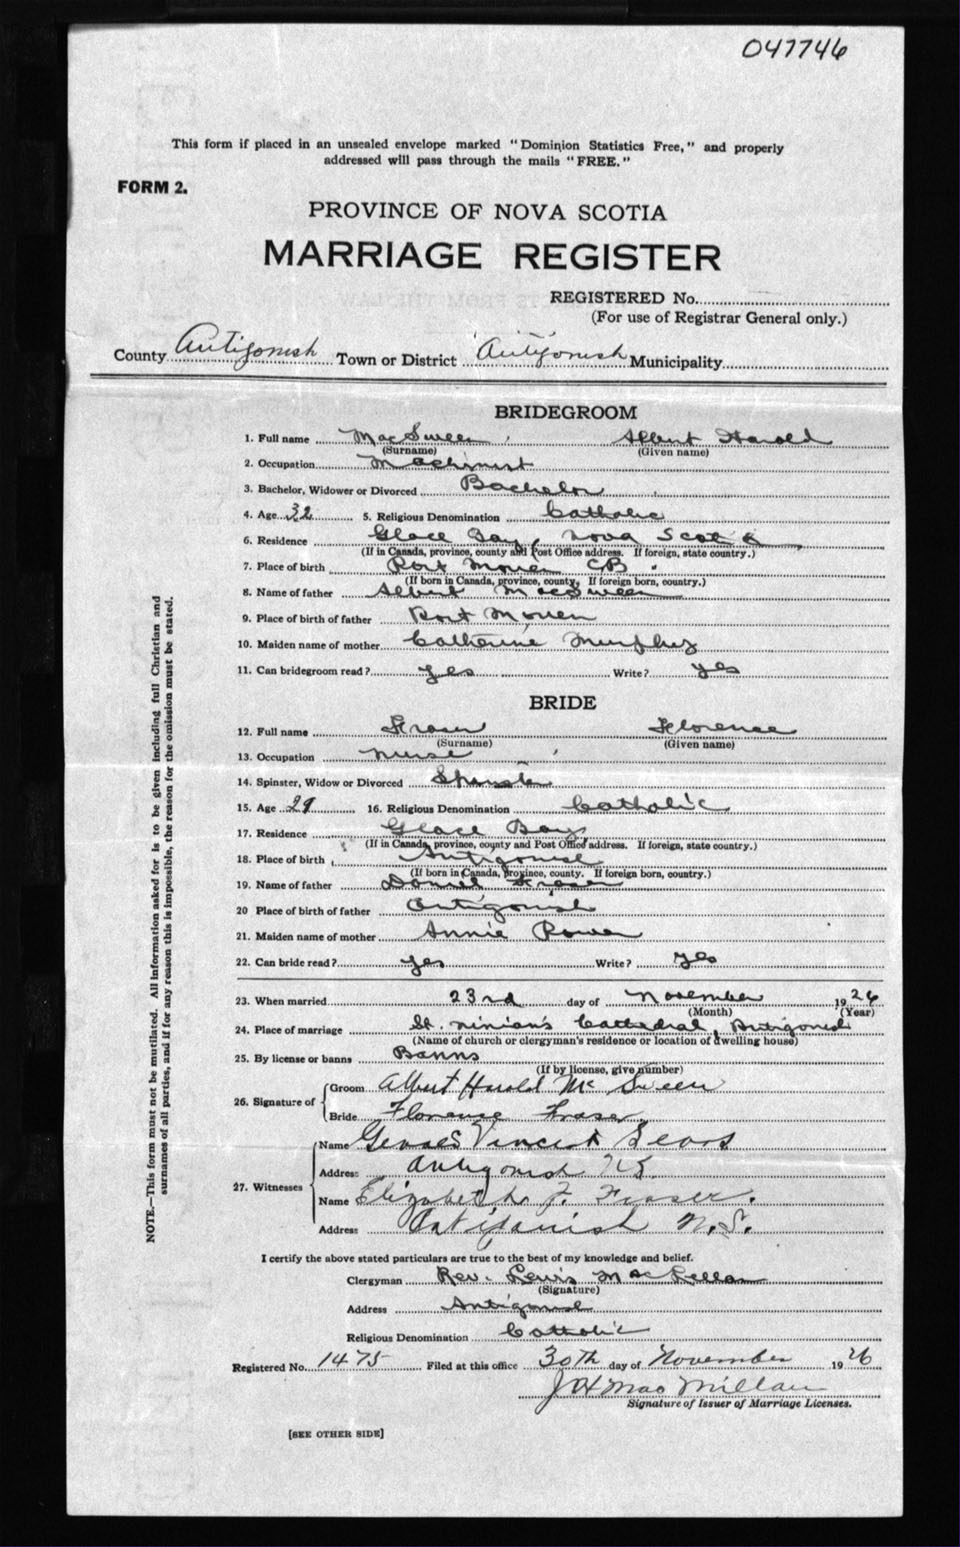 047746
This form if placed in an unsealed envelope marked "Dominion Statistics Free," and properly
addressed will pass through the mails "FREE."
FORM 2.
PROVINCE OF NOVA SCOTIA
MARRIAGE REGISTER
REGISTERED No.
(For use of Registrar General only.)
County Antigonish Town or District Antigonish Municipality
BRIDEGROOM
1. Full name MacSween, Albert Harold
(Surname) (Given name)
2. Occupation Machinist
3. Bachelor, Widower or Divorced Bachelor
4. Age 32 5. Religious Denomination Catholic
6. Residence Glace Bay, Nova Scotia
(If in Canada, province, county and Post Office address. If foreign, state country.)
7. Place of birth Port Morien CB.
(If born in Canada, province, county. If foreign born, country.)
8. Name of father Albert MacSween
9. Place of birth of father Port Morien
10. Maiden name of mother Catherine Murphy
11. Can bridegroom read? yes Write? yes
BRIDE
12. Full name Fraser Florence
(Surname) (Given name)
13. Occupation nurse
14. Spinster, Widow or Divorced Spinster
15. Age 29 16. Religious Denomination Catholic
17. Residence Glace Bay
(If in Canada, province, county and Post Office address. If foreign, state country.)
18. Place of birth Antigonish
(If born in Canada, province, county. If foreign born, country.)
19. Name of father Daniel Fraser
20 Place of birth of father Antigonish
21. Maiden name of mother Annie Power
22. Can bride read? yes Write? yes
23. When married 23rd day of November 1926
(Month) (Year)
24. Place of marriage St. Ninian's Cathedral, Antigonish
(Name of church or clergyman's residence or location of dwelling house)
25. By license or banns Banns
(If by license, give number)
26. Signature of Groom Albert Harold McSween
Bride Florence Fraser
27. Witnesses Name Vincent Sears
Address Antigonish N.S.
Name Elizabeth F. Fraser.
Address Antigonish N.S.
I certify the above stated particulars are true to the best of my knowledge and belief.
Clergyman Rev. Lewis MacLellan
(Signature)
Address Antigonish
Religious Denomination Catholic
Registered No. 1475 Filed at this office 30th day of November 1926
J H MacMillan
Signature of Issuer of Marriage Licenses.
[SEE OTHER SIDE]
NOTE.—This form must not be mutilated. All information asked for is to be given including full Christian and
surnames of all parties, and if for any reason this is impossible, the reason for the omission must be stated.